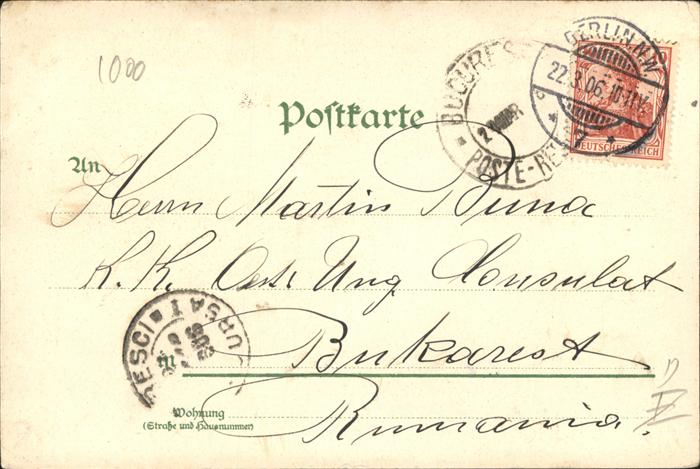 1000
BERLIN N.W.
22.3.06.10-11V.
DEUTSCHES REICH
BUCURES
POSTE-RES
Postkarte
An
Herrn Martin Duna
K. K. Oest. Ung. Consulat
in Bukarest
Wohnung
(Straße und Hausnummer)
Rumania.
RESCI
URSAT